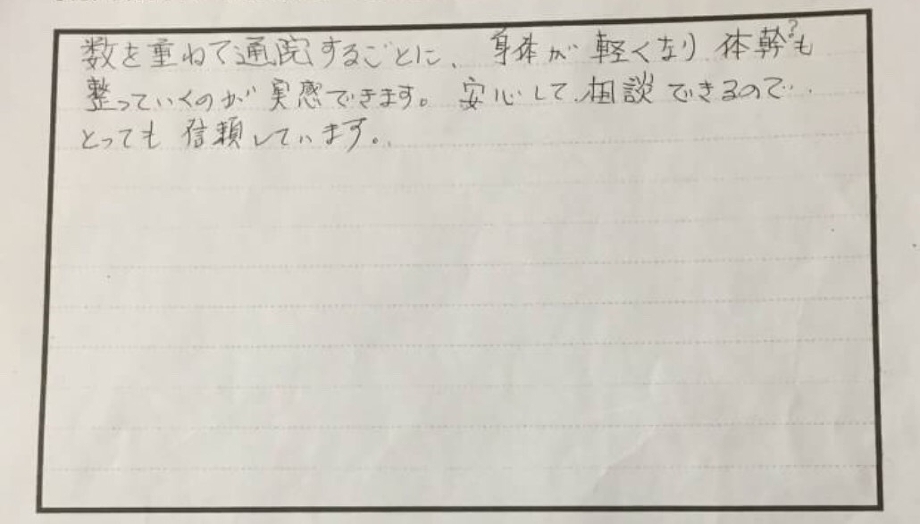 数を重ねて通院するごとに、身体が軽くなり 体幹?も
整っていくのが実感できます。安心して、相談できるので…
とっても信頼しています。